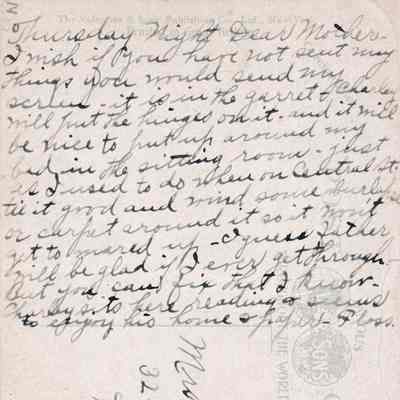 The Valentine & Sons Publishing Co., Ltd., New York
Thursday Night Dear Mother-
I wish if you have not sent my
things you would send my
screen - it is in the garret & Charley
will put the hinges on it - and it will
be nice to put up around my
bed, in the sitting room - just
as I used to do when on Central St.
tie it good and wind some burlap
or carpet around it so it won't
get to mared up - I guess Father
will be glad if I ever get through -
But you can fix that I know -
Charley sits here reading & seems
to enjoy his home & paper - Floss.
Mrs
32
SONS
THE WORLD